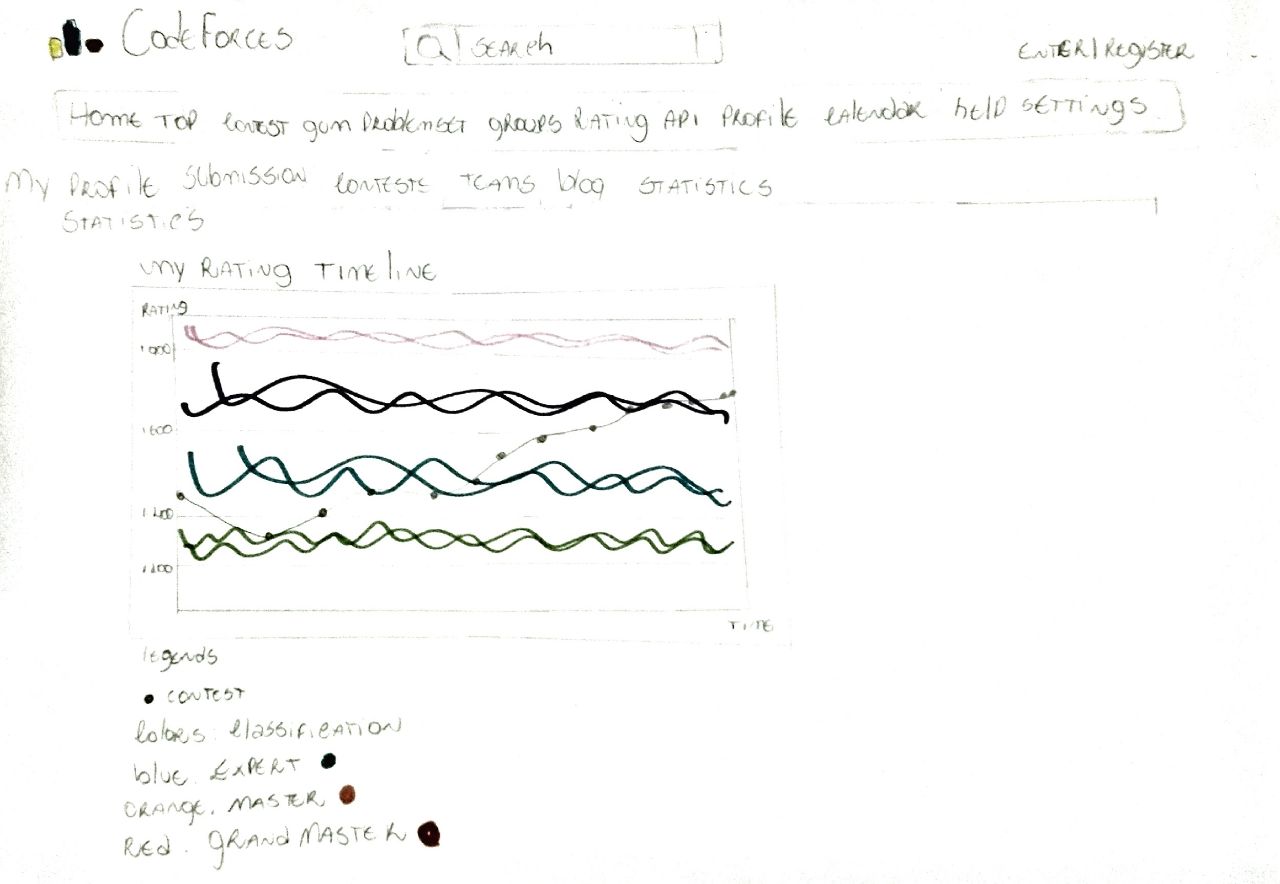 CodeForces
SEARch
ENTER/REGISTER
HOME TOP contest gym problemset groups RATING API PROFILE calendar help SETTINGS
My PROFILE SUBMISSION contests TEAMS blog STATISTICS
STATISTICS
my RATING TIMELINE
RATING
1900
1600
1400
1200
TIME
legends
• CONTEST
Colors: classification
blue. EXPERT
ORANGE. MASTER
Red. GRAND MASTER